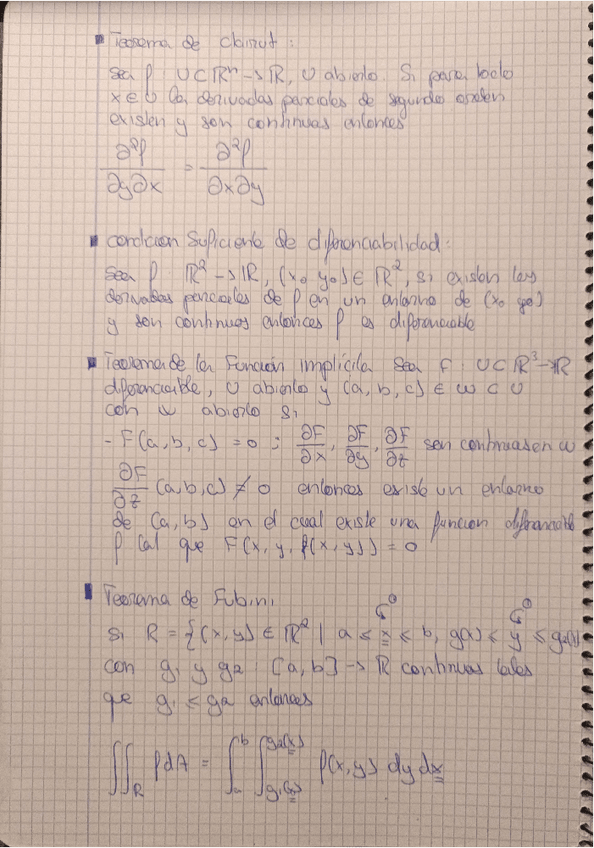 Teorema de Clairut :
Sea f : U⊂ℝⁿ→ℝ, U abierto. Si para todo
x∈U las derivadas parciales de segundo orden
existen y son continuas entonces
∂²f/∂y∂x = ∂²f/∂x∂y
condicion Suficiente de diferenciabilidad :
Sea f : ℝ²→ℝ, (x₀ y₀)∈ℝ², si existen las
derivadas parciales de f en un entorno de (x₀ y₀)
y son continuas entonces f es diferenciable
Teorema de la Función implícita Sea F : U⊂ℝ³→ℝ
diferenciable, U abierto y (a, b, c) ∈ w ⊂ U
con w abierto si
- F(a, b, c) = 0 ; ∂F/∂x, ∂F/∂y, ∂F/∂z son continuas en w
∂F/∂z (a, b, c) ≠ 0 entonces existe un entorno
de (a, b) en el cual existe una función diferenciable
f tal que F(x, y, f(x, y)) = 0
Teorema de Fubini
Si R = {(x, y) ∈ ℝ² | a ≤ x ≤ b, g₁(x) ≤ y ≤ g₂(x)
con g₁ y g₂ : [a, b] → ℝ continuas tales
que g₁ ≤ g₂ entonces
∬_R f dA = ∫_a^b ∫_{g₁(x)}^{g₂(x)} f(x, y) dy dx